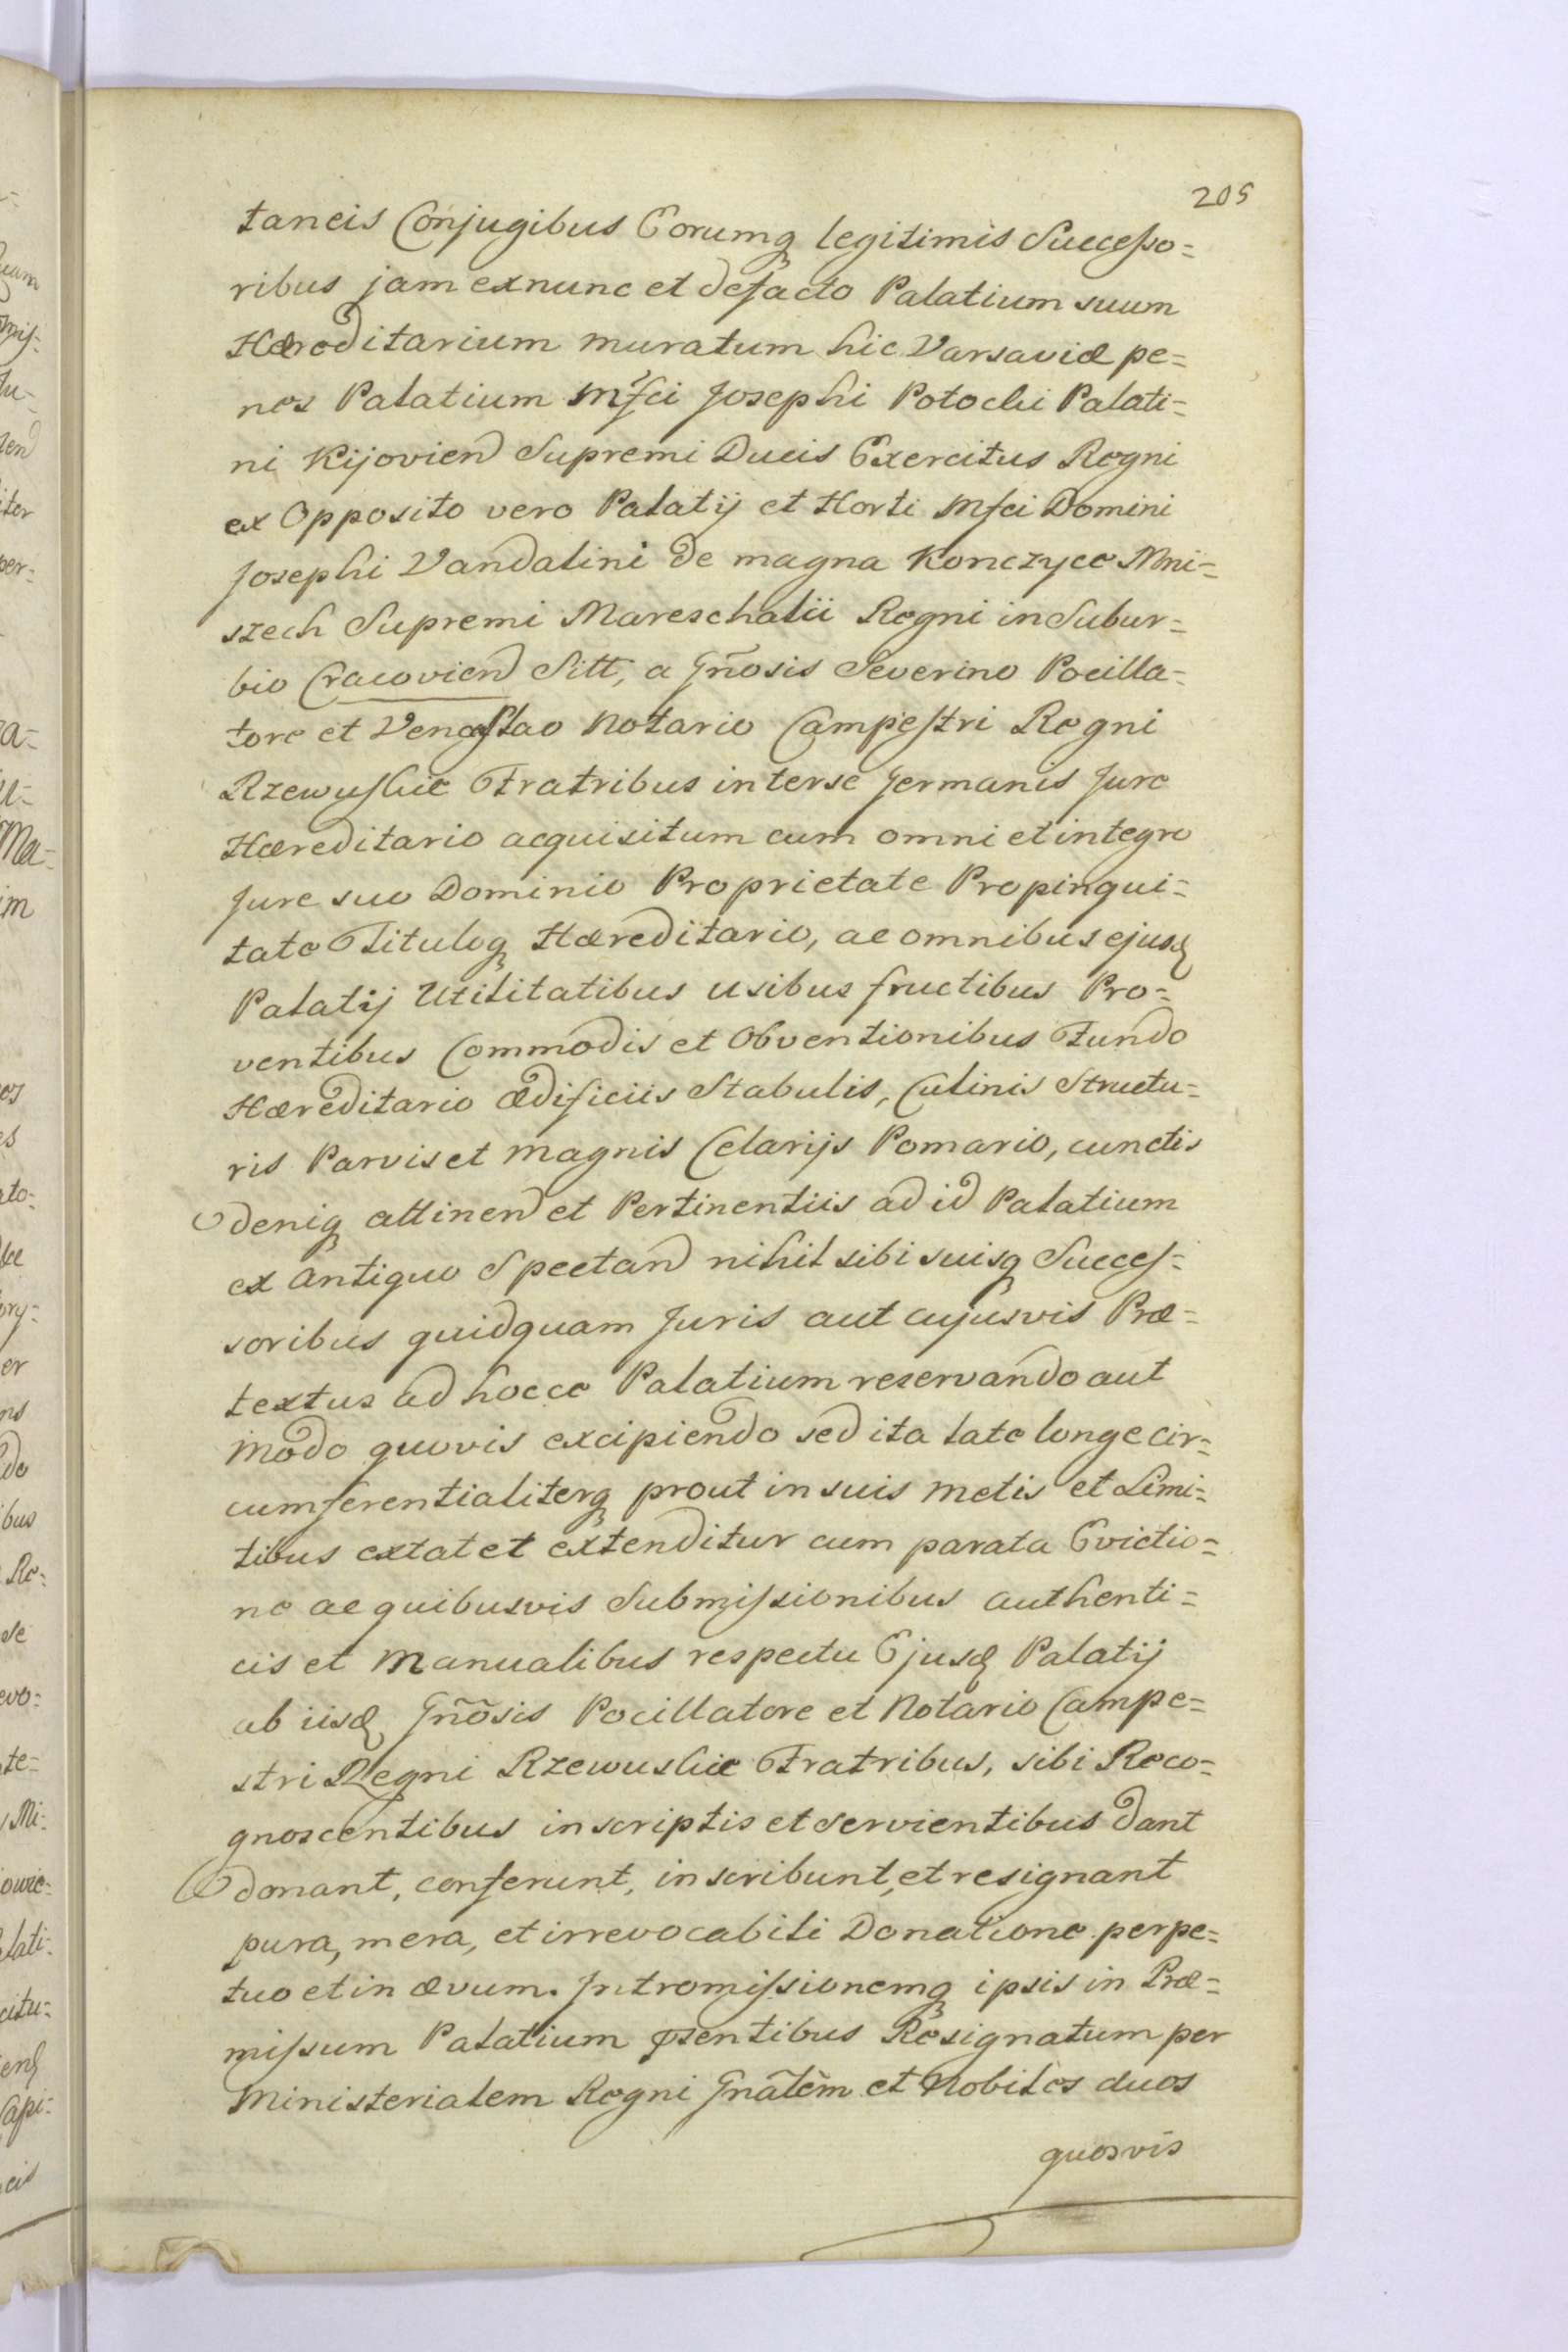 205
taneis Conjugibus Eorumq legitimis Successo=
ribus jam exnunc et defacto Palatium suum
Hæreditarium muratum hic Varsaviæ pe=
nes Palatium Mfci Josephi Potocki Palati=
ni Kijovien Supremi Ducis Exercitus Regni
ex Opposito vero Palatij et Horti Mfci Domini
Josephi Vandalini de magna Konczyce Mni=
szech Supremi Mareschalii Regni in Subur=
bio Cracovien Sitt, a Gñosis Severino Pocilla=
tore et Venceslao Notario Campestri Regni
Rzewuskie Fratribus interse Germanis Jure
Hæreditario acquisitum cum omni et integro
Jure suo Dominio Proprietate Propinqui=
tate Tituloq Hæreditario, ac omnibus ejusd
Palatij Utilitatibus usibus fructibus Pro=
ventibus Commodis et Obventionibus Fundo
Hæreditario ædificiis Stabulis, Culinis Structu=
ris Parvis et magnis Celarijs Pomario, cunctis
deniq attinen et Pertinentiis ad id Palatium
ex antiquo Spectan nihil sibi suisq Succes=
soribus quidquam Juris aut cujusvis Præ=
textus ad hocce Palatium reservando aut
modo quovis excipiendo sed ita late longe cir=
cumferentialiterq prout in suis metis et Limi=
tibus extat et extenditur cum parata Evictio=
ne ac quibusvis Submissionibus authenti=
cis et manualibus respectu Ejusd Palatij
ab iisd Gñõsis Pocillatore et Notario Campe=
stri Regni Rzewuskie Fratribus, sibi Reco=
gnoscentibus inscriptis et servientibus dant
donant, conferunt, inscribunt, et resignant
pura, mera, et irrevocabili Donatione perpe=
tuo et in ævum. Intromissionemq ipsis in Præ=
missum Palatium pſentibus Resignatum per
Ministerialem Regni Gnãlẽm et Nobiles duos
quosvis